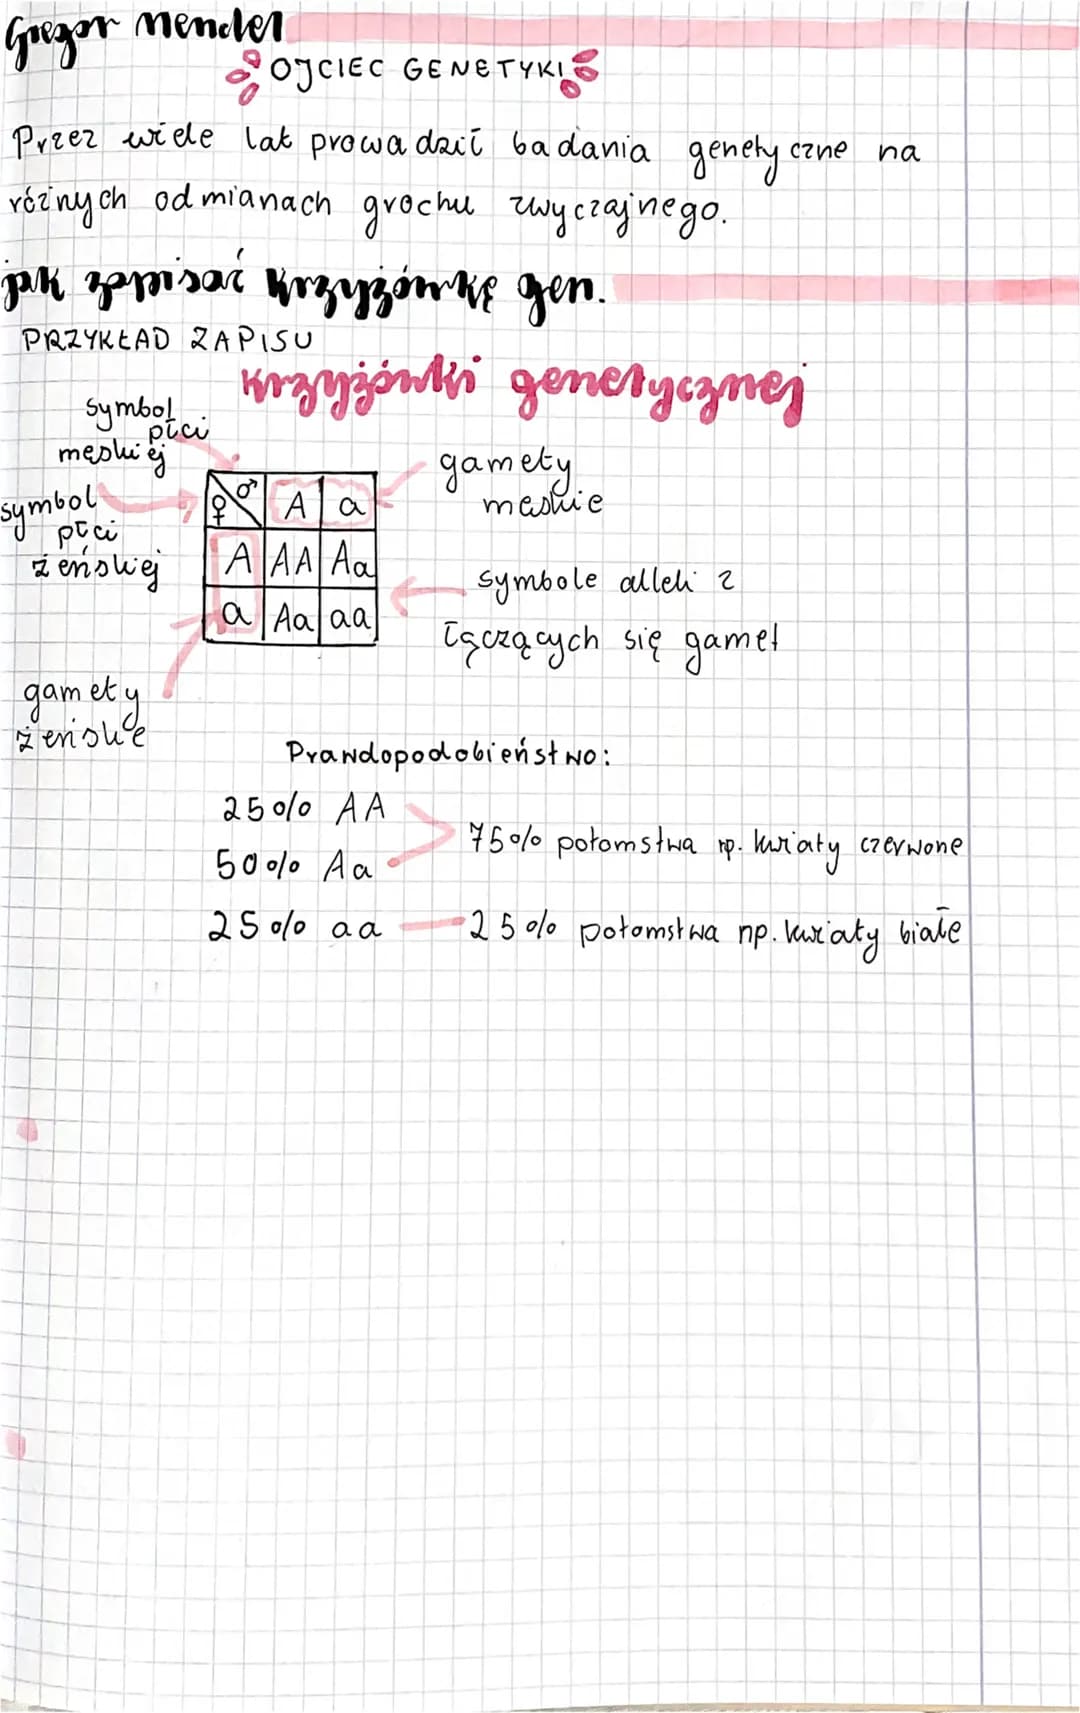 Gregor Mendel
OJCIEC GENETYKI
Przez wiele lat prowadził badania genetyczne na
różnych odmianach grochu zwyczajnego.
jak zapisać krzyżówkę gen.
PRZYKŁAD ZAPISU
krzyżówki genetycznej
symbol
płci
męskiej
symbol
płci
żeńskiej
♀ ♂ A a
A AA Aa
a Aa aa
gamety
męskie
symbole alleli z
łączących się gamet
gamety
żeńskie
Prawdopodobieństwo:
25% AA
50% Aa
75% potomstwa np. kwiaty czerwone
25% aa — 25% potomstwa np. kwiaty białe